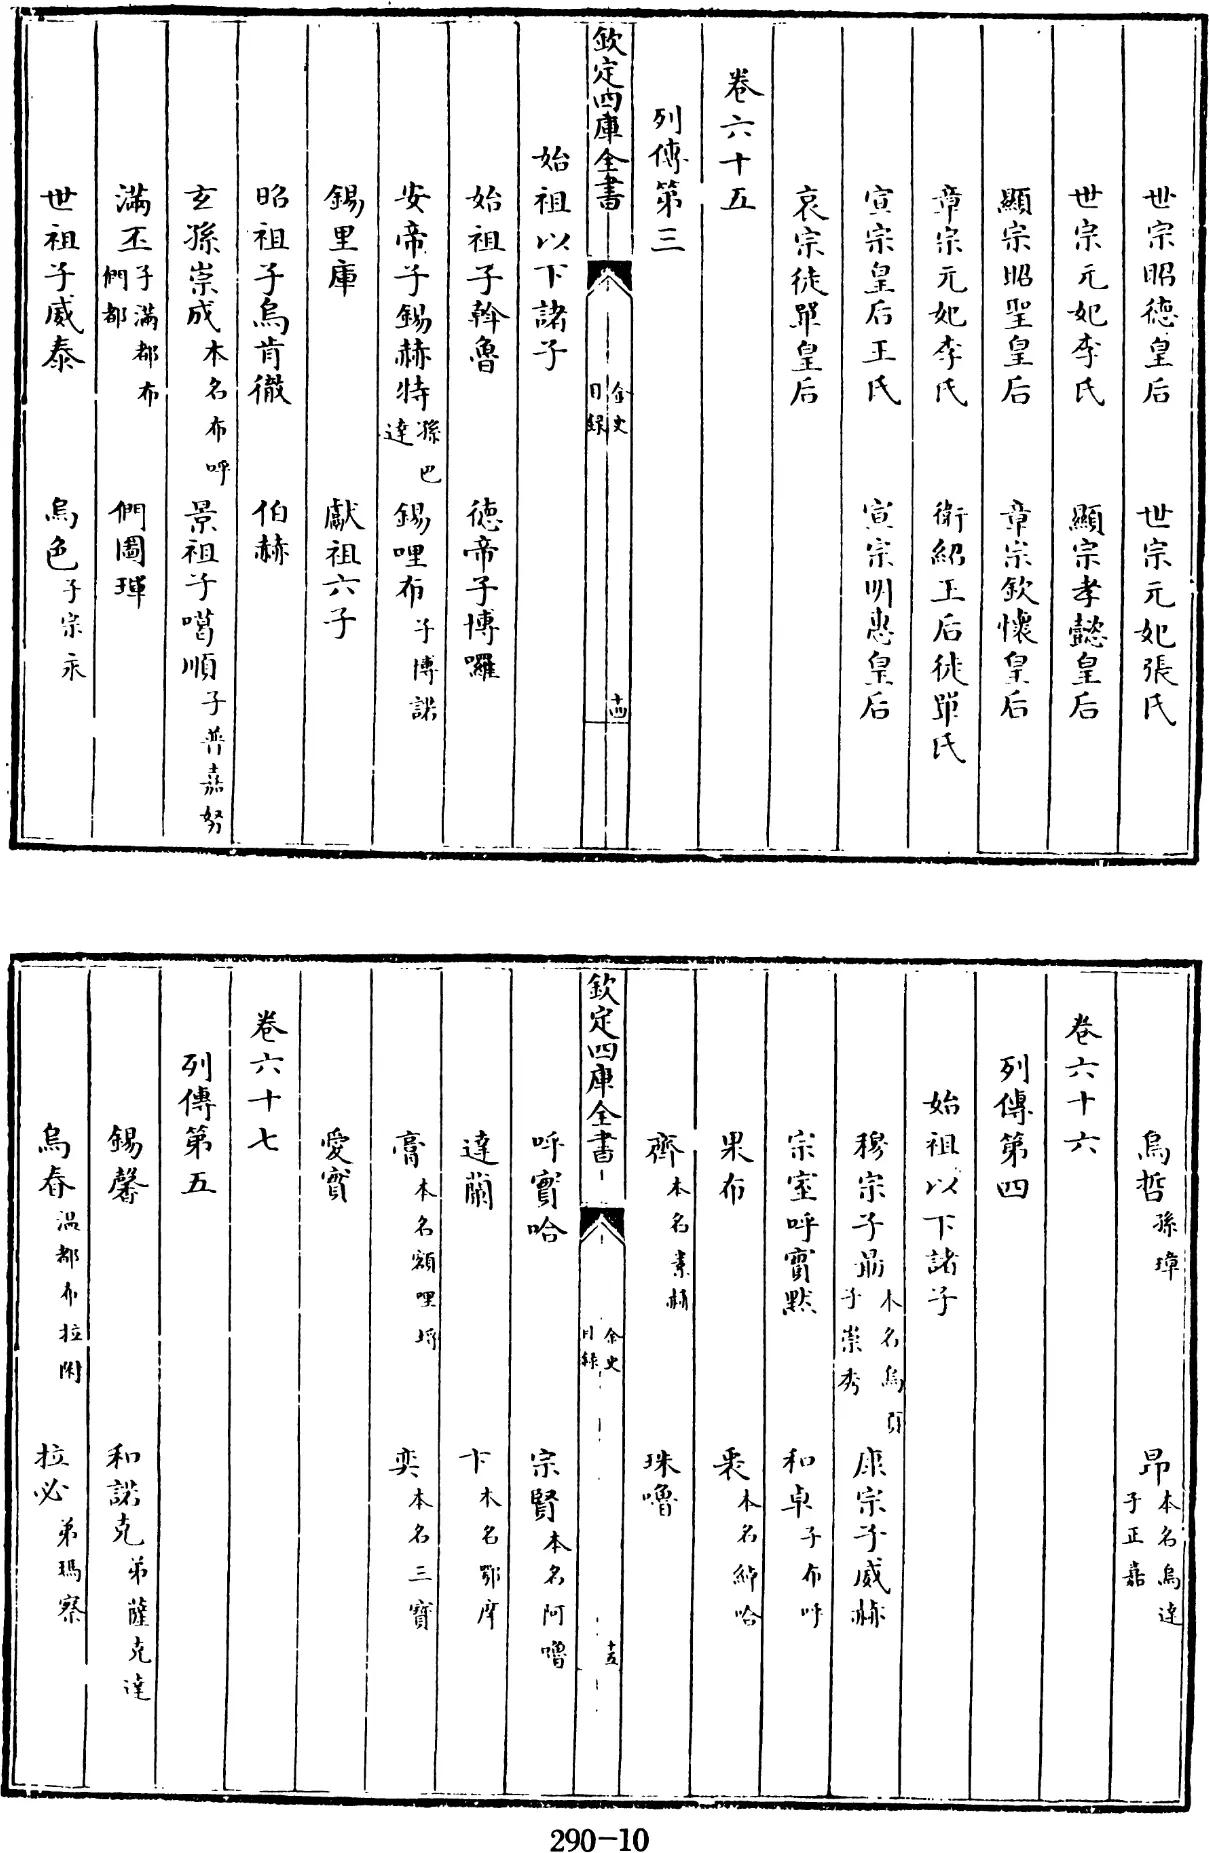 世宗昭德皇后 世宗元妃張氏
世宗元妃李氏 顯宗孝懿皇后
顯宗昭聖皇后 章宗欽懷皇后
章宗元妃李氏 衛紹王后徒單氏
宣宗皇后王氏 宣宗明惠皇后
哀宗徒單皇后
卷六十五
列傳第三
欽定四庫全書 金史目録 十四
始祖以下諸子
始祖子斡魯 德帝子博囉
安帝子錫赫特孫巴達 錫哩布子博諾
錫里庫 獻祖六子
昭祖子烏肯徹 伯赫
玄孫崇成本名布呼 景祖子噶順子普嘉努
滿丕子滿都布們都 們圖琿
世祖子威泰 烏色子宗永
烏哲孫璋 昂本名烏達子正嘉
卷六十六
列傳第四
始祖以下諸子
穆宗子勗本名烏頁子崇秀 康宗子威赫
宗室呼實黙 和卓子布呼
果布 裵本名綽哈
齊本名素赫 珠嚕
欽定四庫全書 金史目録 十五
呼實哈 宗賢本名阿嚕
達蘭 卞本名鄂摩
膏本名額哩埒 奕本名三寶
愛實
卷六十七
列傳第五
錫馨 和諾克弟薩克達
烏春温都布拉附 拉必弟瑪察
290-10